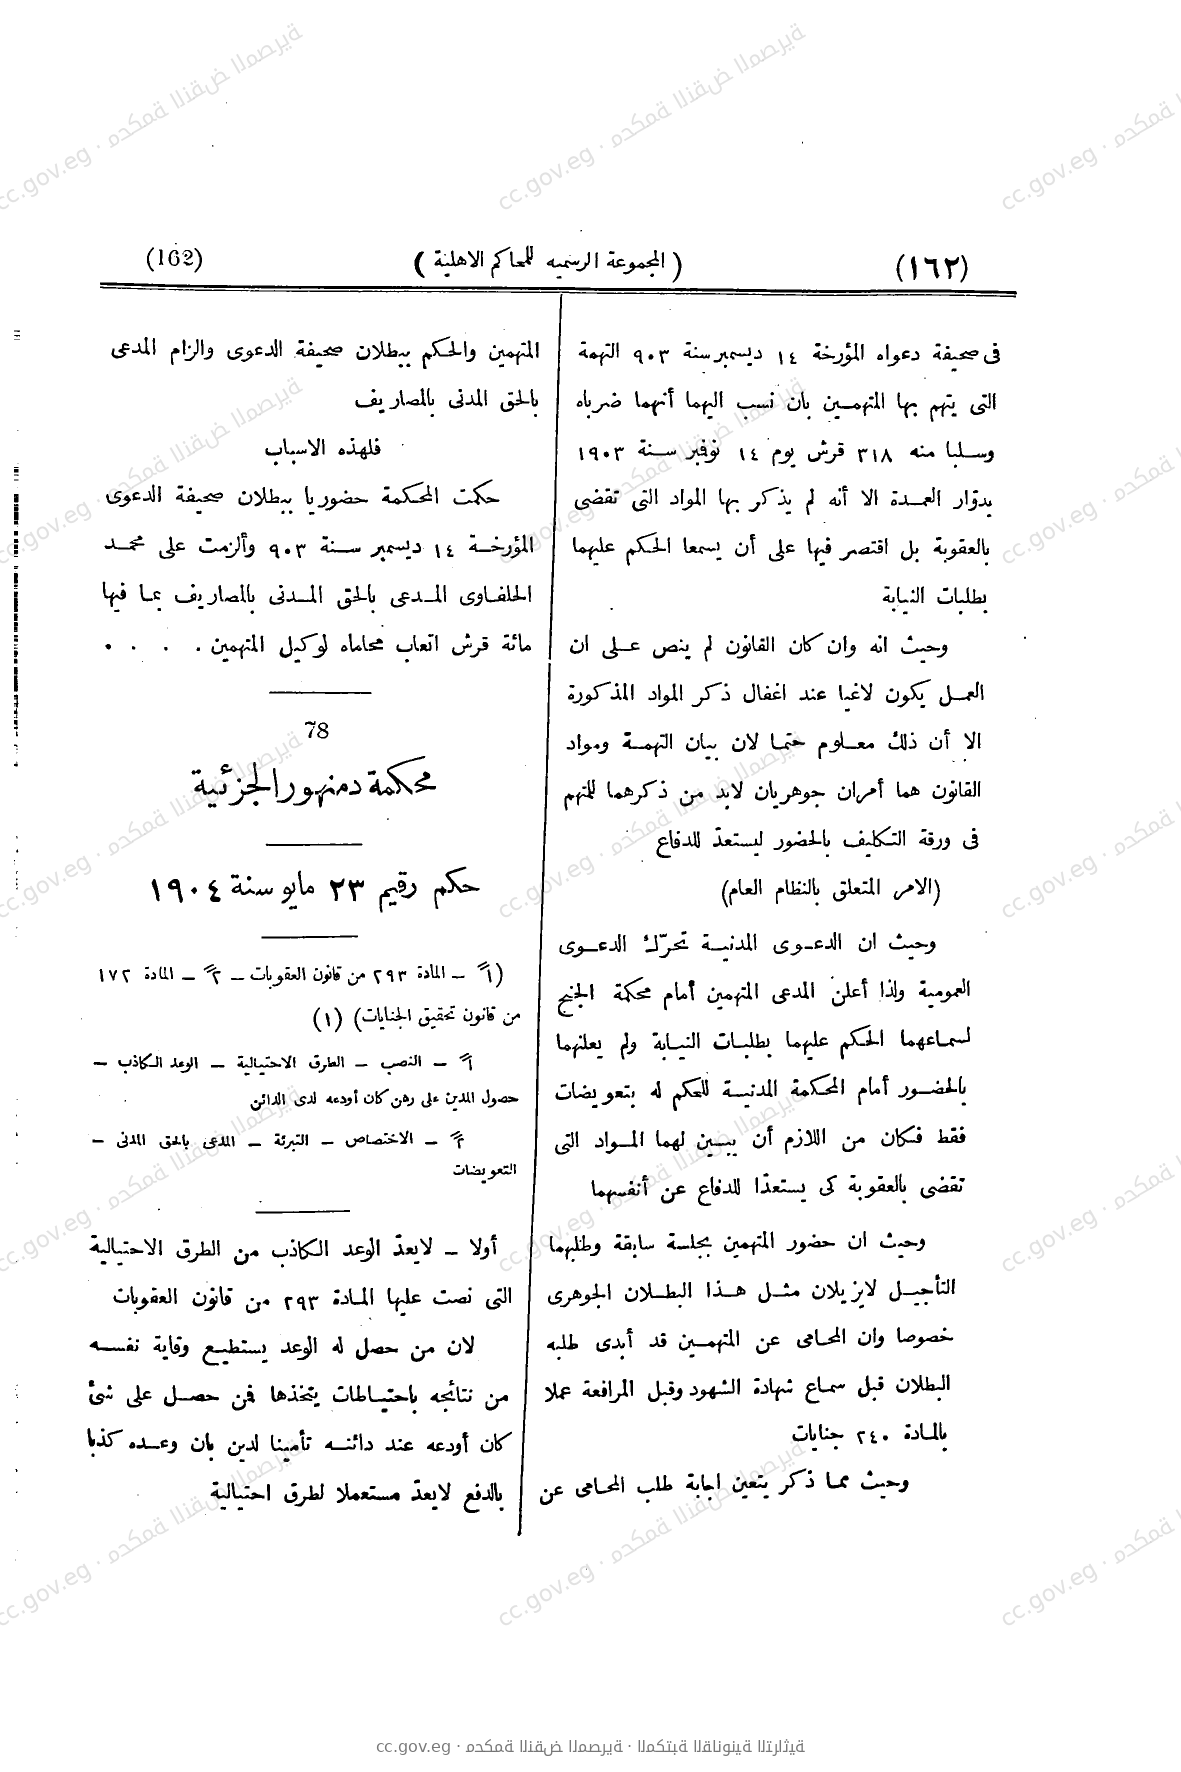 (١٦٢)
( المجموعة الرسميه للمحاكم الاهلية )
(162)
فى صحيفة دعواه المؤرخة ١٤ ديسمبر سنة ٩٠٣ التهمة
التى يتهم بها المتهمين بان نسب اليهما أنهما ضرباه
وسلبا منه ٣١٨ قرش يوم ١٤ نوفبر سنة ١٩٠٣
بدوّار العمدة الا أنه لم يذكر بها المواد التى تقضى
بالعقوبة بل اقتصر فيها على أن يسمعا الحكم عليهما
بطلبات النيابة
وحيث انه وان كان القانون لم ينص على ان
العمل يكون لاغيا عند اغفال ذكر المواد المذكورة
الا أن ذلك معلوم حتما لان بيان التهمة ومواد
القانون هما أمران جوهريان لابد من ذكرهما للمتهم
فى ورقة التكليف بالحضور ليستعدّ للدفاع
(الامر المتعلق بالنظام العام)
وحيث ان الدعوى المدنية تحرّك الدعوى
العمومية ولذا أعلن المدعى المتهمين أمام محكمة الجنح
لسماعهما الحكم عليهما بطلبات النيابة ولم يعلنهما
بالحضور أمام المحكمة المدنية للحكم له بتعويضات
فقط فكان من اللازم أن يبين لهما المواد التى
تقضى بالعقوبة كى يستعدّا للدفاع عن أنفسهما
وحيث ان حضور المتهمين بجلسة سابقة وطلبهما
التأجيل لايزيلان مثل هذا البطلان الجوهرى
خصوصا وان المحامى عن المتهمين قد أبدى طلبه
البطلان قبل سماع شهادة الشهود وقبل المرافعة عملا
بالمادة ٢٤٠ جنايات
وحيث مما ذكر يتعين اجابة طلب المحامى عن
المتهمين والحكم ببطلان صحيفة الدعوى والزام المدعى
بالحق المدنى بالمصاريف
فلهذه الاسباب
حكمت المحكمة حضوريا ببطلان صحيفة الدعوى
المؤرخة ١٤ ديسمبر سنة ٩٠٣ وألزمت على محمد
الحلفاوى المدعى بالحق المدنى بالمصاريف بما فيها
مائة قرش اتعاب محاماه لوكيل المتهمين . . . .
78
محكمة دمنهور الجزئية
حكم رقيم ٢٣ مايو سنة ١٩٠٤
(١ً – المادة ٢٩٣ من قانون العقوبات – ٢ً – المادة ١٧٢
من قانون تحقيق الجنايات) (١)
١ً – النصب – الطرق الاحتيالية – الوعد الكاذب –
حصول المدين على رهن كان أودعه لدى الدائن
٢ً – الاختصاص – التبرئة – المدعى بالحق المدنى –
التعويضات
أولا – لايعدّ الوعد الكاذب من الطرق الاحتيالية
التى نصت عليها المادة ٢٩٣ من قانون العقوبات
لان من حصل له الوعد يستطيع وقاية نفسه
من نتائجه باحتياطات يتخذها فمن حصل على شئ
كان أودعه عند دائنه تأمينا لدين بان وعده كذبا
بالدفع لايعدّ مستعملا لطرق احتيالية
cc.gov.eg · محكمة النقض المصرية · المكتبة القانونية التراثية